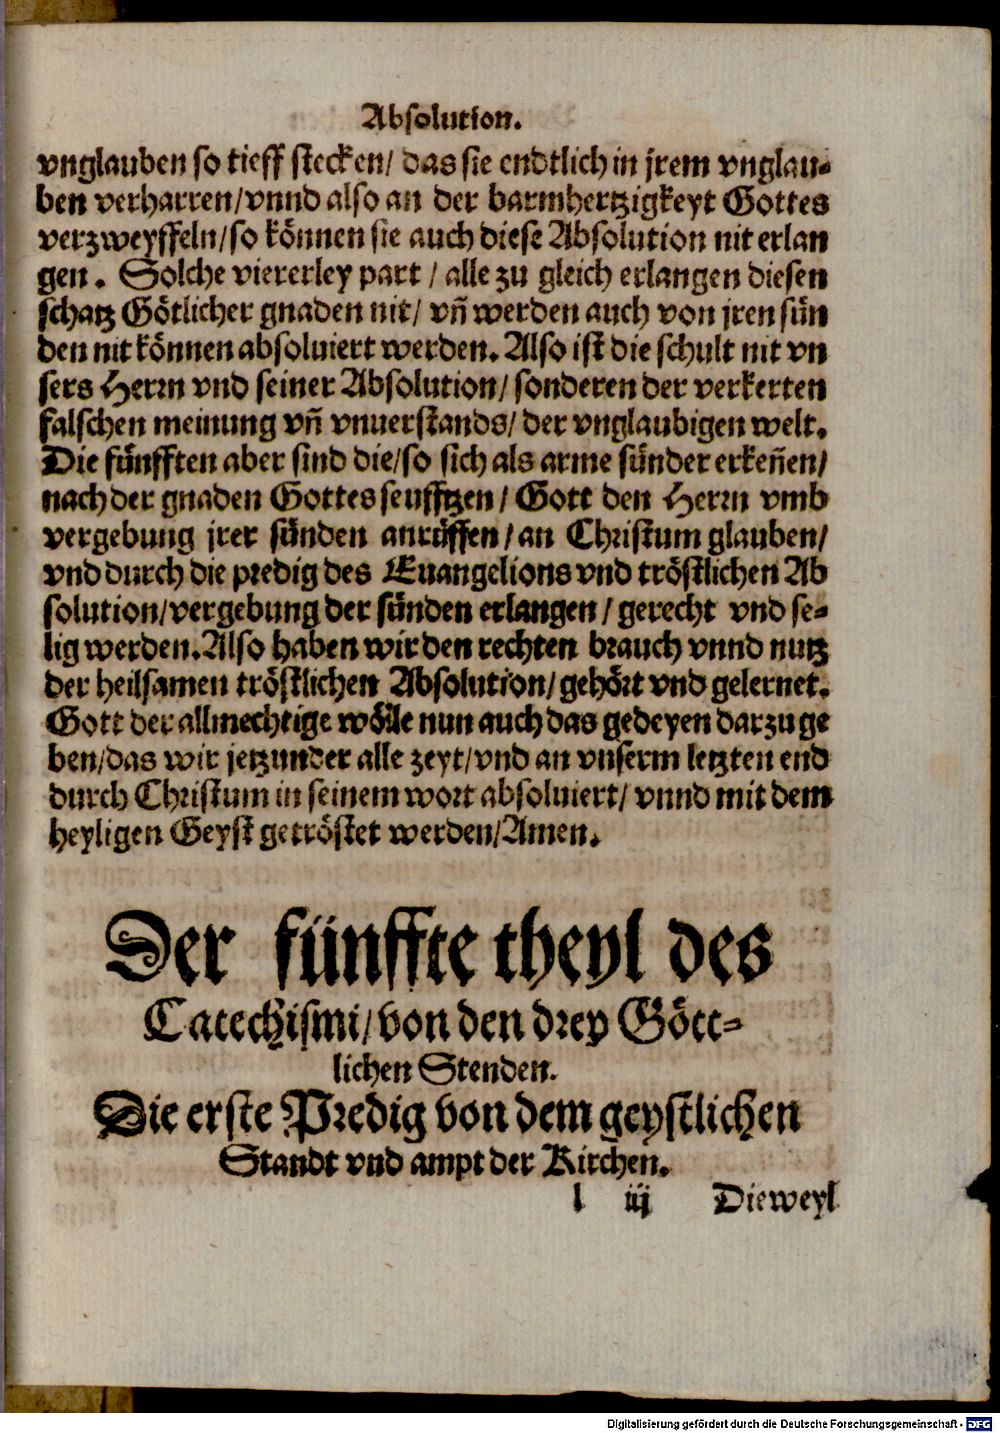 Absolution.
vnglauben so tieff stecken/ das sie endtlich in jrem vnglau-
ben verharren/vnnd also an der barmhertzigkeyt Gottes
verzweyffeln/so können sie auch diese Absolution nit erlan
gen. Solche viererley part / alle zu gleich erlangen diesen
schatz Götlicher gnaden nit/ vñ werden auch von jren sün
den nit können absoluiert werden. Also ist die schult nit vn
sers Herrn vnd seiner Absolution/ sonderen der verkerten
falschen meinung vñ vnuerstands/ der vnglaubigen welt.
Die fünfften aber sind die/so sich als arme sünder erkeñen/
nach der gnaden Gottes seufftzen/ Gott den Herrn vmb
vergebung jrer sünden anrüffen/an Christum glauben/
vnd durch die predig des Euangelions vnd tröstlichen Ab
solution/vergebung der sünden erlangen/ gerecht vnd se-
lig werden. Also haben wir den rechten brauch vnnd nutz
der heilsamen tröstlichen Absolution/gehört vnd gelernet.
Gott der allmechtige wölle nun auch das gedeyen darzu ge
ben/das wir jetzunder alle zeyt/vnd an vnserm letzten end
durch Christum in seinem wort absoluiert/ vnnd mit dem
heyligen Geyst getröstet werden/Amen.
Der fünffte theyl des
Catechismi/von den drey Gött-
lichen Stenden.
Die erste Predig von dem geystlichen
Standt vnd ampt der Kirchen.
l iij Dieweyl
Digitalisierung gefördert durch die Deutsche Forschungsgemeinschaft - DFG